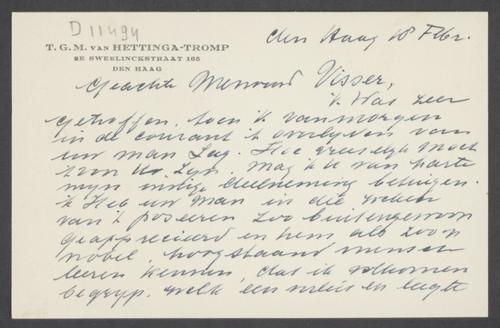 D 11494
T. G. M. VAN HETTINGA-TROMP
2E SWEELINCKSTRAAT 165
DEN HAAG
den Haag 18 Febr.
Geachte Mevrouw Visser,
'k Was zeer
getroffen, toen ik vanmorgen
in de courant 't overlyden van
uw man zag. Hoe vreeselyk moet
't voor U zyn. Mag ik U van harte
myn innige deelneming betuigen.
'k Heb uw man in die weken
van 't poseeren zoo buitengewoon
geapprecieerd en hem als zoo'n
nobel, hoogstaand mensch
leeren kennen, dat ik volkomen
begryp, welk een verlies en leegte